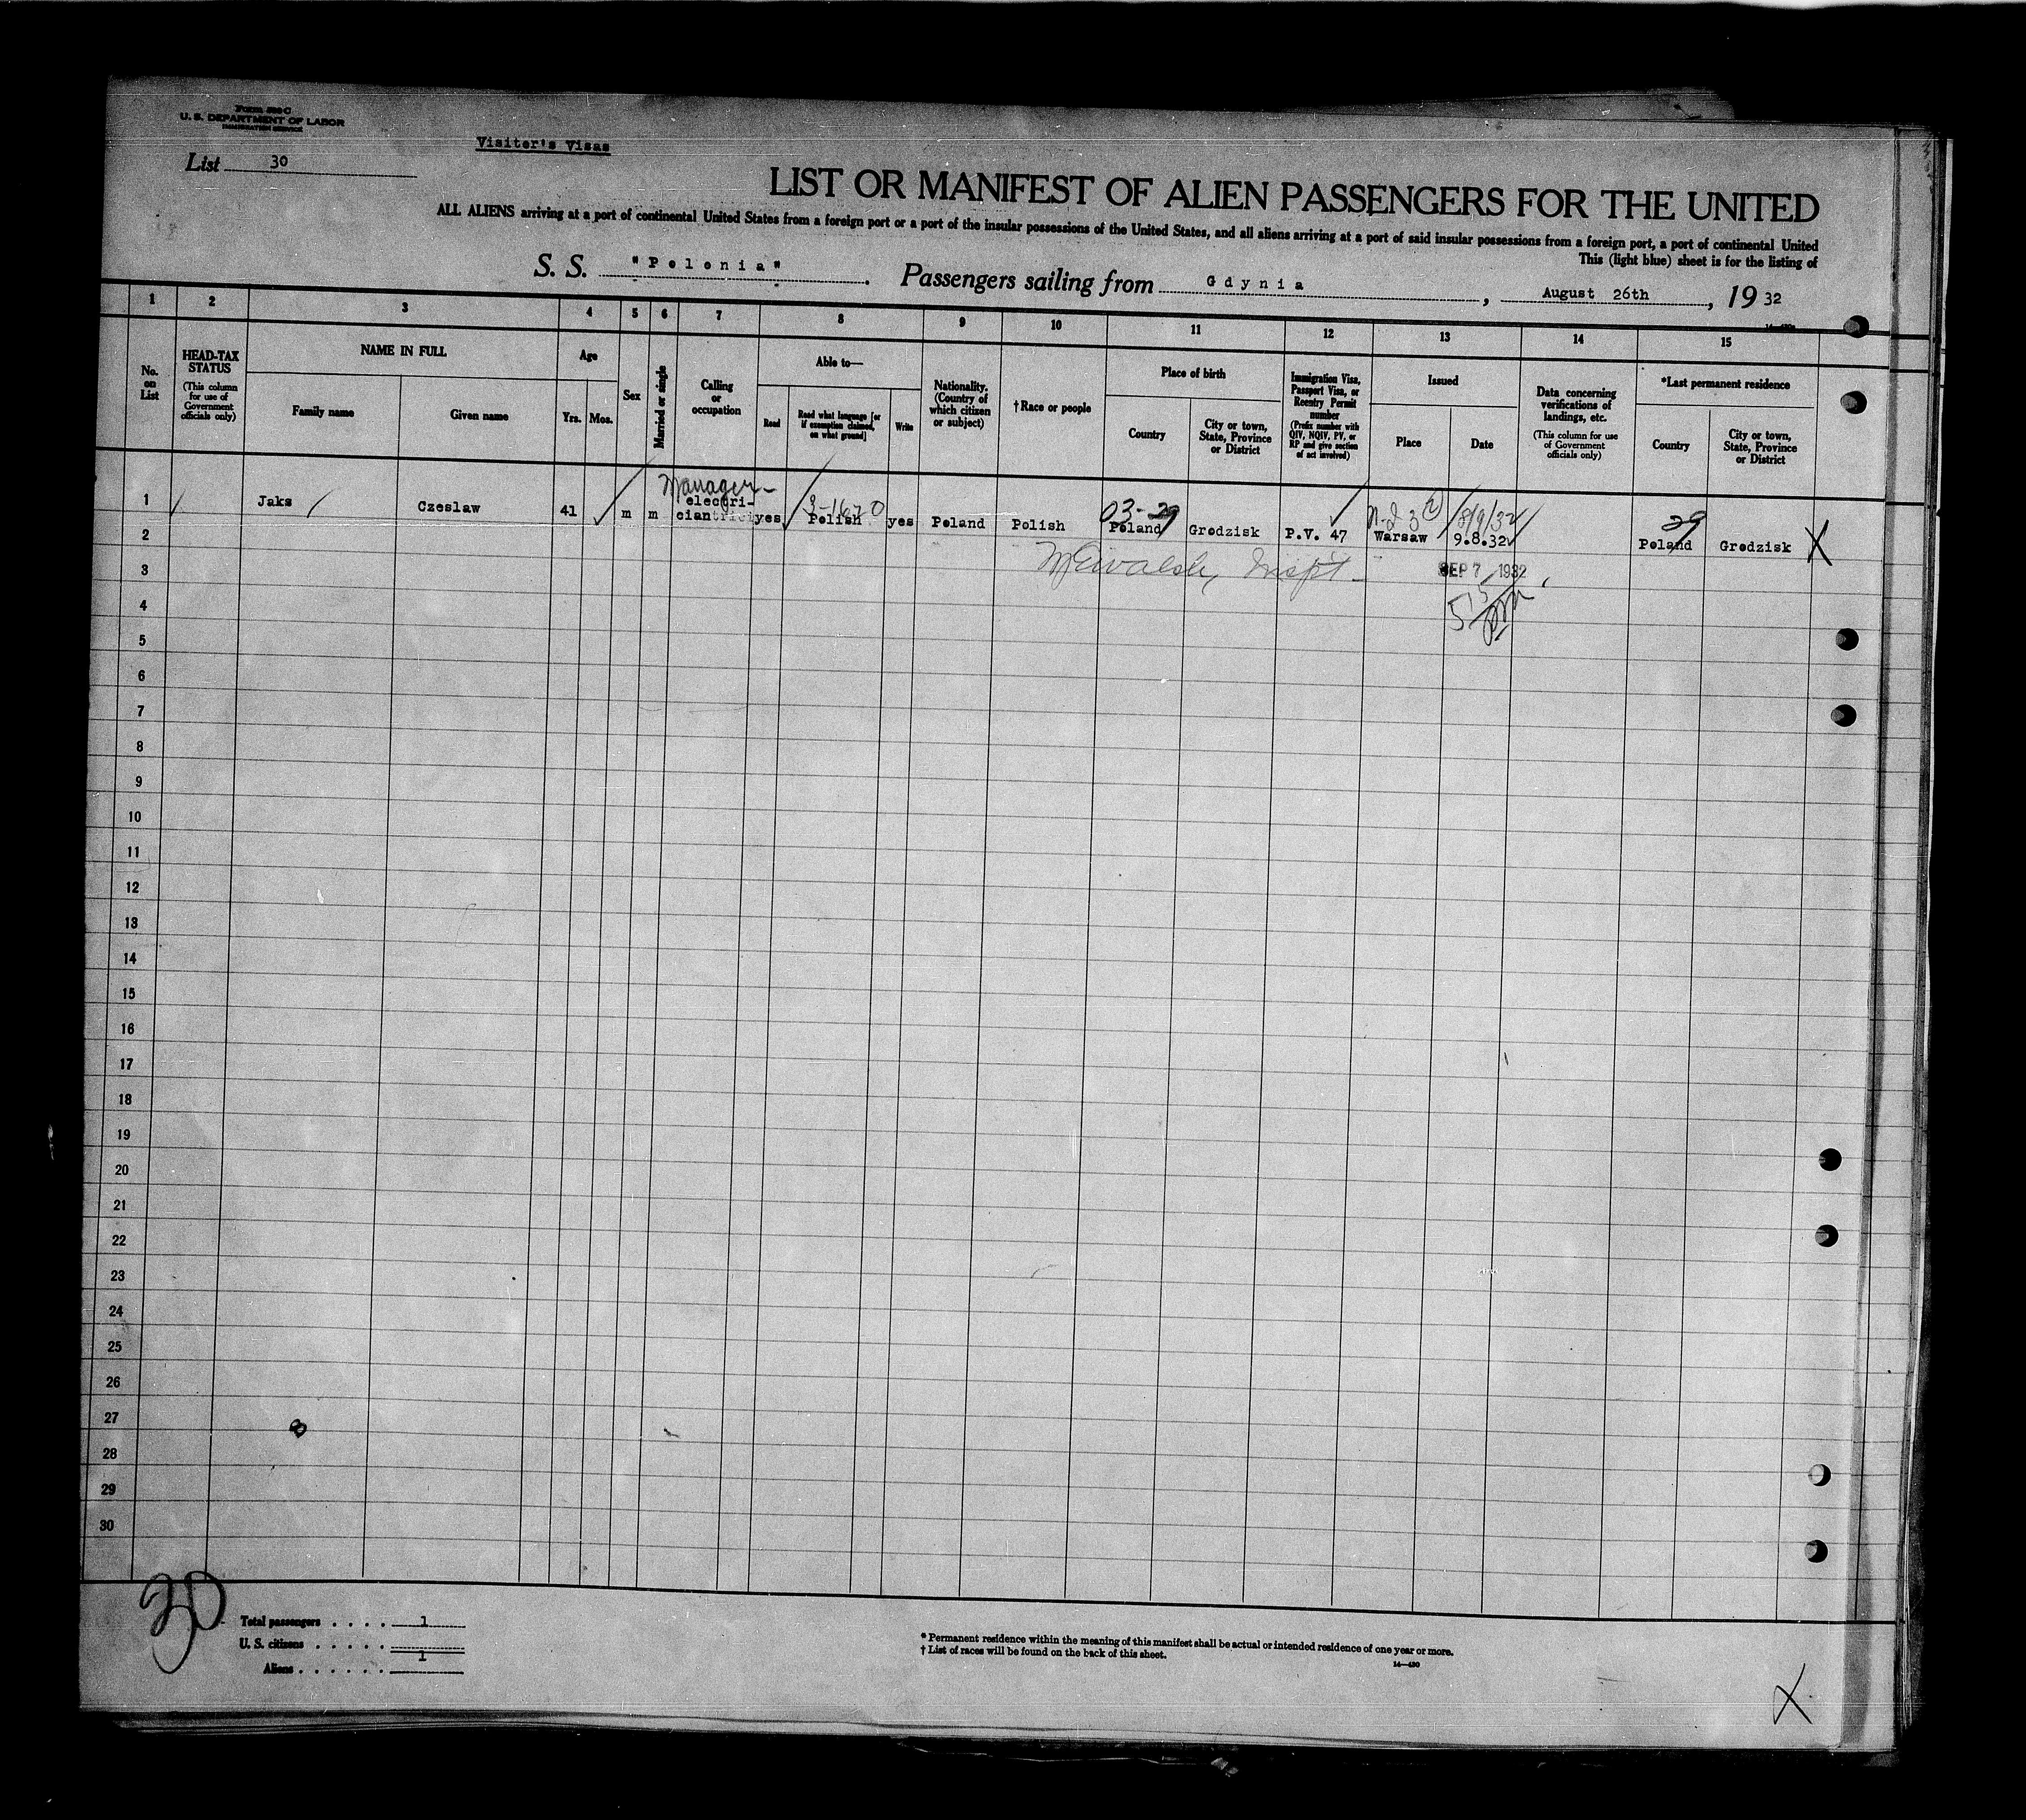 Form 500-C
U. S. DEPARTMENT OF LABOR
IMMIGRATION SERVICE
Visiter's Visas
List 30
LIST OR MANIFEST OF ALIEN PASSENGERS FOR THE UNITED
ALL ALIENS arriving at a port of continental United States from a foreign port or a port of the insular possessions of the United States, and all aliens arriving at a port of said insular possessions from a foreign port, a port of continental United
This (light blue) sheet is for the listing of
S. S. "Polonia". Passengers sailing from Gdynia, August 26th, 19 32
1 2 3 4 5 6 7 8 9 10 11 12 13 14 15
No. on List
HEAD-TAX STATUS
(This column for use of Government officials only)
NAME IN FULL
Family name
Given name
Age
Yrs. Mos.
Sex
Married or single
Calling or occupation
Able to—
Read
Read what language [or if exemption claimed, on what ground]
Write
Nationality. (Country of which citizen or subject)
†Race or people
Place of birth
Country
City or town, State, Province or District
Immigration Visa, Passport Visa, or Reentry Permit number
(Prefix number with QIV, NQIV, PV, or RP and give section of act involved)
Issued
Place
Date
Data concerning verifications of landings, etc.
(This column for use of Government officials only)
*Last permanent residence
Country
City or town, State, Province or District
Manager
03-29
8/9/32
29
1 Jaks Czeslaw 41 m m electri-
cian yes Polish yes Poland Polish Poland Grodzisk P.V. 47 Warsaw 9.8.32 Poland Grodzisk X
2
Walsh, Inspt.
SEP 7 1932
3
5 15 pm
4
5
6
7
8
9
10
11
12
13
14
15
16
17
18
19
20
21
22
23
24
25
26
27
28
29
30
30
Total passengers . . . . 1
U. S. citizens . . . . .
Aliens . . . . . . 1
* Permanent residence within the meaning of this manifest shall be actual or intended residence of one year or more.
† List of races will be found on the back of this sheet.
14—430
X